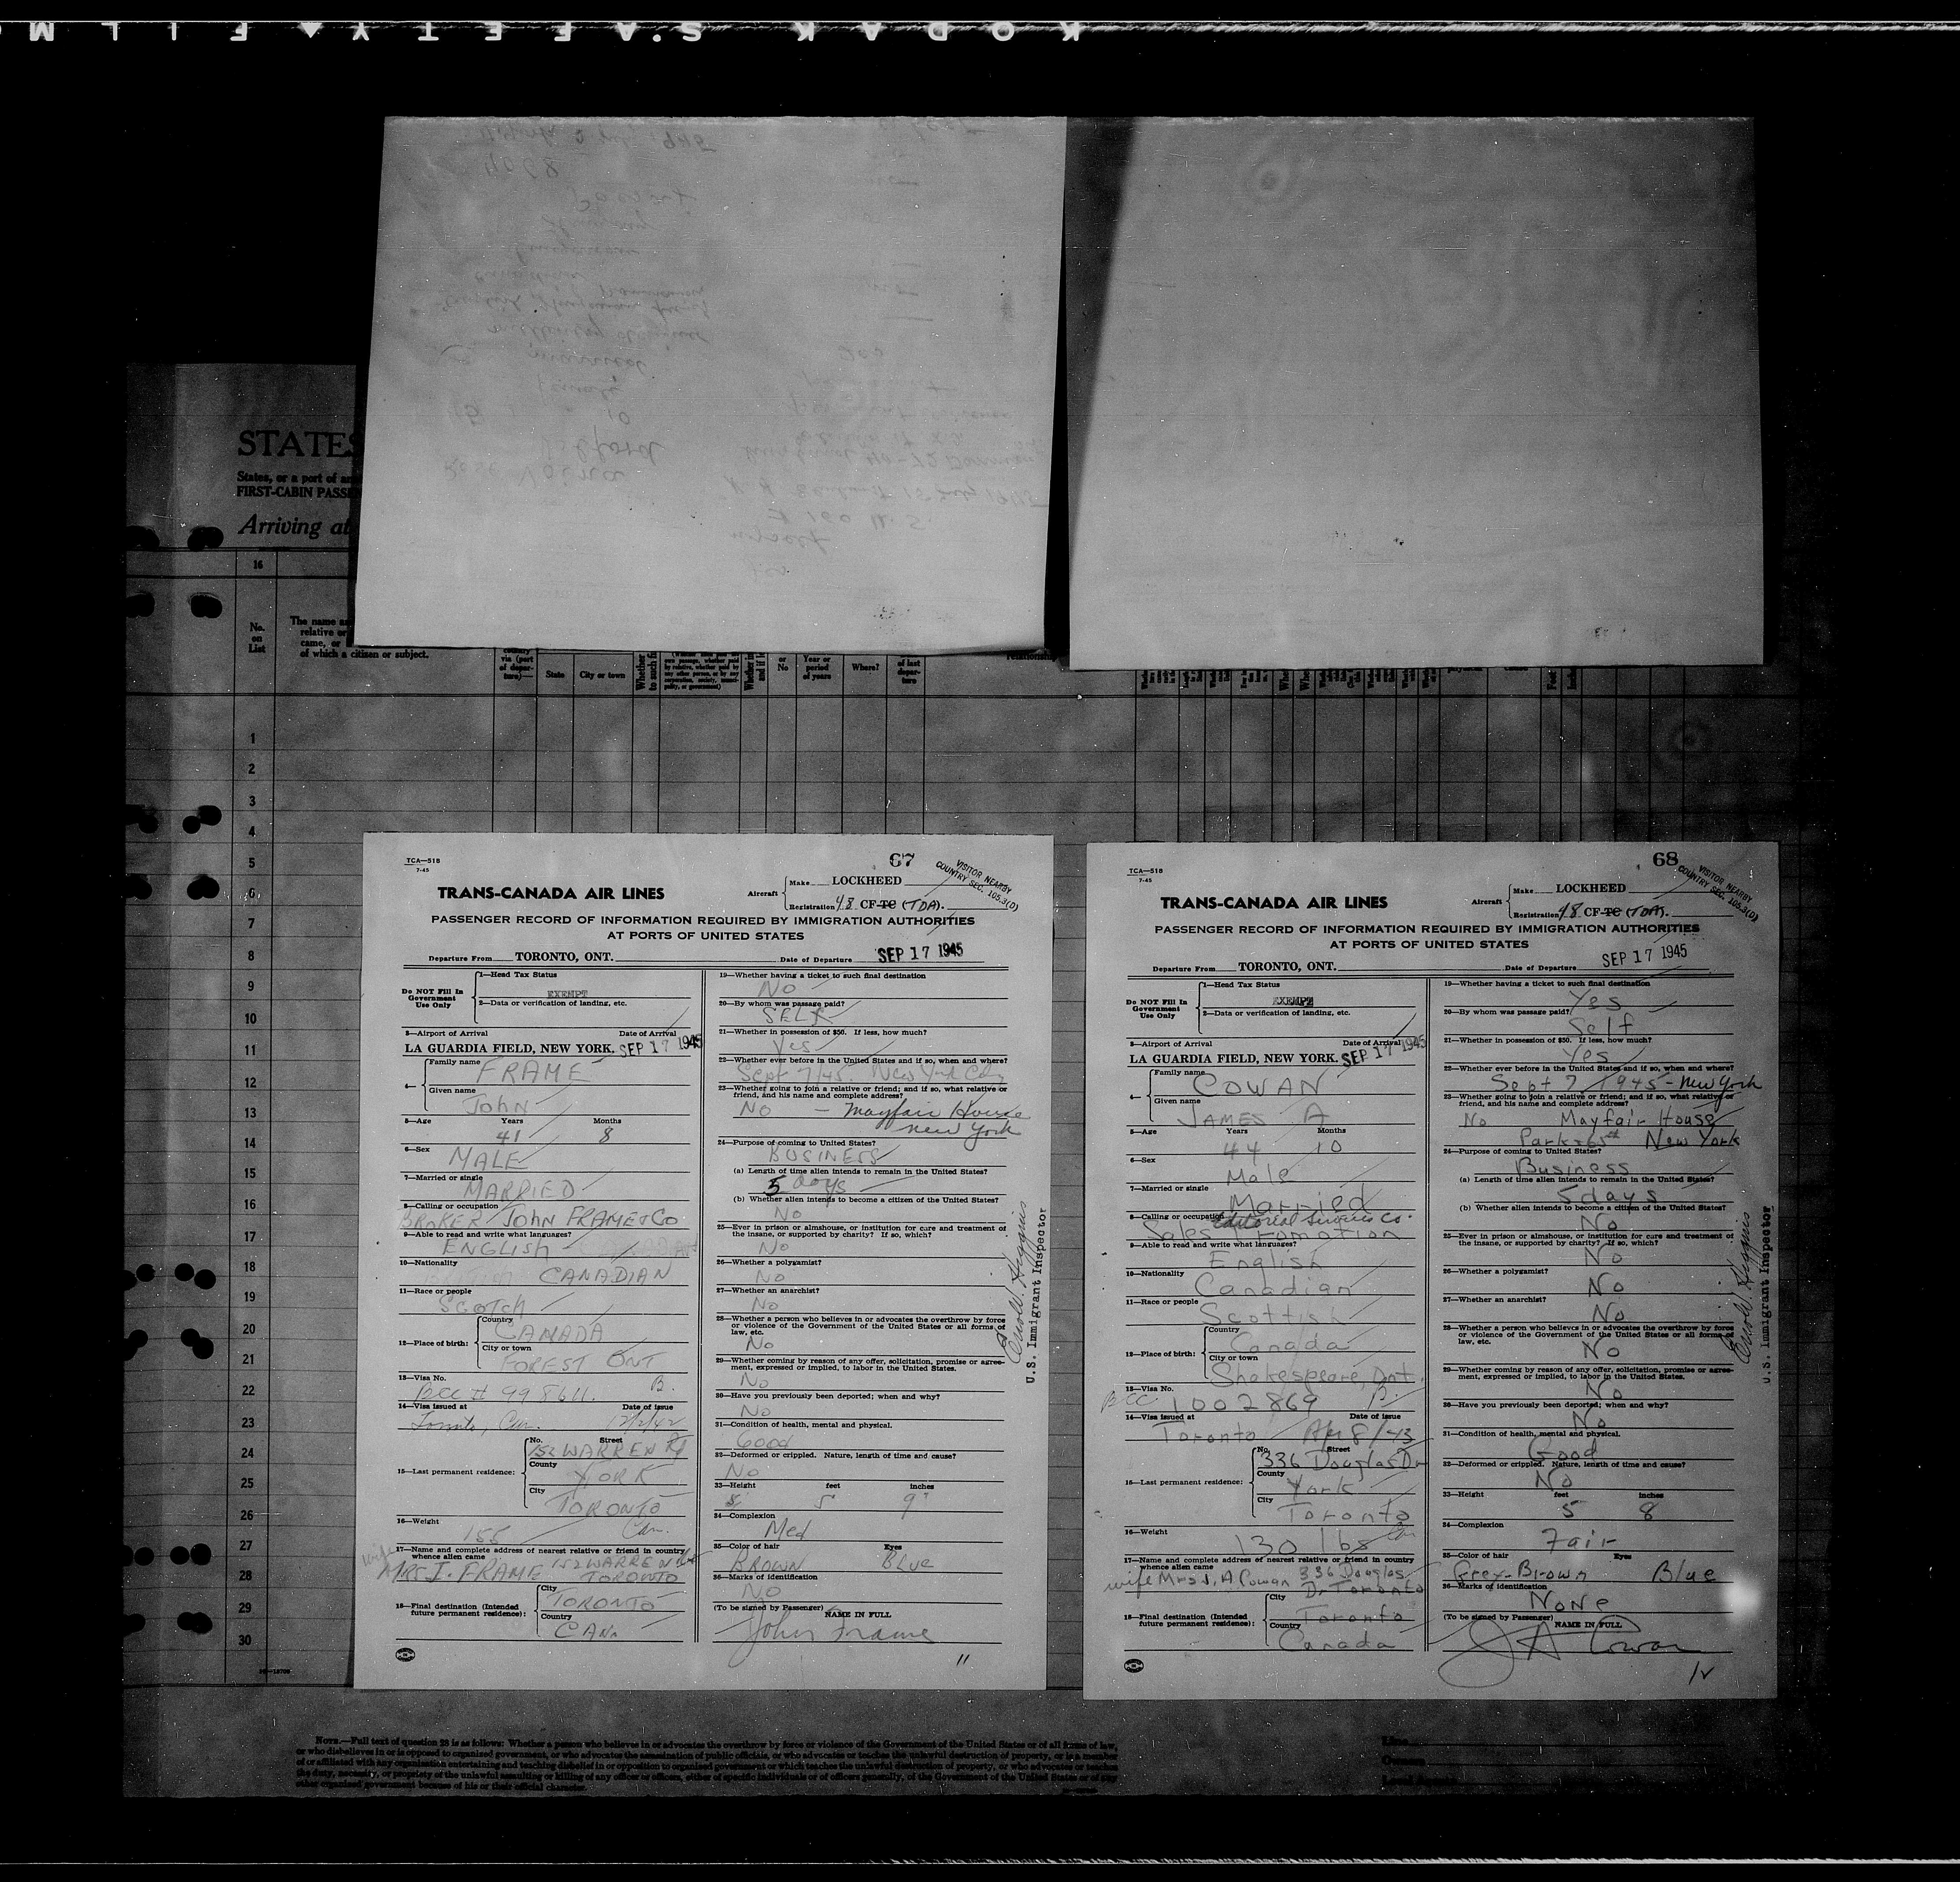 KODAK SAFETY FILM
STATES
States, or a port of
FIRST-CABIN PASSE
Arriving at
16
No.
on
List
The name
relative or
came, or
of which a citizen or subject.
via (port
of depar-
ture)—
State
City or town
or
No
Year or
period
of years
Where?
of last
depar-
ture
1
2
3
4
5
6
7
8
9
10
11
12
13
14
15
16
17
18
19
20
21
22
23
24
25
26
27
28
29
30
TCA—518
7-45
67
VISITOR NEARBY
COUNTRY SEC. 105.3(D)
TRANS-CANADA AIR LINES
Aircraft
Make LOCKHEED
Registration 48 CF-TC (TDA).
PASSENGER RECORD OF INFORMATION REQUIRED BY IMMIGRATION AUTHORITIES
AT PORTS OF UNITED STATES
Departure From TORONTO, ONT. Date of Departure SEP 17 1945
Do NOT Fill In
Government
Use Only
1—Head Tax Status
EXEMPT
2—Data or verification of landing, etc.
3—Airport of Arrival Date of Arrival
LA GUARDIA FIELD, NEW YORK. SEP 17 1945
4—
Family name
FRAME
Given name
John
5—Age Years Months
41 8
6—Sex
MALE
7—Married or single
MARRIED
8—Calling or occupation
BROKER John FRAME & Co
9—Able to read and write what languages?
ENGLISH
10—Nationality
CANADIAN
11—Race or people
SCOTCH
12—Place of birth:
Country
CANADA
City or town
FOREST ONT
13—Visa No.
BCC # 998611. B.
14—Visa issued at Date of issue
Toronto, Can. 12/2/42
15—Last permanent residence:
No. Street
152 WARREN Rd
County
YORK
City
TORONTO
Can.
16—Weight
155
17—Name and complete address of nearest relative or friend in country
whence alien came
wife
MRS J. FRAME 152 WARREN Rd
TORONTO
18—Final destination (Intended
future permanent residence):
City
TORONTO
Country
CAN.
19—Whether having a ticket to such final destination
No
20—By whom was passage paid?
SELF
21—Whether in possession of $50. If less, how much?
Yes
22—Whether ever before in the United States and if so, when and where?
Sept 7/45. New York City
23—Whether going to join a relative or friend; and if so, what relative or
friend, and his name and complete address?
No — Mayfair House
New York
24—Purpose of coming to United States?
BUSINESS
(a) Length of time alien intends to remain in the United States?
5 days
(b) Whether alien intends to become a citizen of the United States?
No
25—Ever in prison or almshouse, or institution for cure and treatment of
the insane, or supported by charity? If so, which?
No
26—Whether a polygamist?
No
27—Whether an anarchist?
No
28—Whether a person who believes in or advocates the overthrow by force
or violence of the Government of the United States or all forms of
law, etc.
No
29—Whether coming by reason of any offer, solicitation, promise or agree-
ment, expressed or implied, to labor in the United States.
No
30—Have you previously been deported; when and why?
No
31—Condition of health, mental and physical.
Good
32—Deformed or crippled. Nature, length of time and cause?
No
33—Height feet inches
5 9
34—Complexion
Med
35—Color of hair Eyes
BROWN Blue
36—Marks of identification
No
(To be signed by Passenger) NAME IN FULL
John Frame
11
U.S. Immigrant Inspector
TCA—518
7-45
68
VISITOR NEARBY
COUNTRY SEC. 105.3(D)
TRANS-CANADA AIR LINES
Aircraft
Make LOCKHEED
Registration 48 CF-TC (TDA).
PASSENGER RECORD OF INFORMATION REQUIRED BY IMMIGRATION AUTHORITIES
AT PORTS OF UNITED STATES
Departure From TORONTO, ONT. Date of Departure SEP 17 1945
Do NOT Fill In
Government
Use Only
1—Head Tax Status
EXEMPT
2—Data or verification of landing, etc.
3—Airport of Arrival Date of Arrival
LA GUARDIA FIELD, NEW YORK. SEP 17 1945
4—
Family name
COWAN
Given name
JAMES A
5—Age Years Months
44 10
6—Sex
Male
7—Married or single
Married
8—Calling or occupation Editorial Services Co.
Sales Promotion
9—Able to read and write what languages?
English
10—Nationality
Canadian
11—Race or people
Scottish
12—Place of birth:
Country
Canada
City or town
Shakespeare, Ont.
13—Visa No.
BCC 1002869 B.
14—Visa issued at Date of issue
Toronto Apr 8/43
15—Last permanent residence:
No. Street
336 Douglas Dr
County
York
City
Toronto
Can
16—Weight
130 lbs
17—Name and complete address of nearest relative or friend in country
whence alien came
wife Mrs J. A Cowan 336 Douglas
Dr Toronto
18—Final destination (Intended
future permanent residence):
City
Toronto
Country
Canada
19—Whether having a ticket to such final destination
Yes
20—By whom was passage paid?
Self
21—Whether in possession of $50. If less, how much?
Yes
22—Whether ever before in the United States and if so, when and where?
Sept 7 1945 - New York
23—Whether going to join a relative or friend; and if so, what relative or
friend, and his name and complete address?
No Mayfair House
Park & 65th New York
24—Purpose of coming to United States?
Business
(a) Length of time alien intends to remain in the United States?
5 days
(b) Whether alien intends to become a citizen of the United States?
No
25—Ever in prison or almshouse, or institution for cure and treatment of
the insane, or supported by charity? If so, which?
No
26—Whether a polygamist?
No
27—Whether an anarchist?
No
28—Whether a person who believes in or advocates the overthrow by force
or violence of the Government of the United States or all forms of
law, etc.
No
29—Whether coming by reason of any offer, solicitation, promise or agree-
ment, expressed or implied, to labor in the United States.
No
30—Have you previously been deported; when and why?
No
31—Condition of health, mental and physical.
Good
32—Deformed or crippled. Nature, length of time and cause?
No
33—Height feet inches
5 8
34—Complexion
Fair
35—Color of hair Eyes
Grey-Brown Blue
36—Marks of identification
None
(To be signed by Passenger) NAME IN FULL
J A Cowan
U.S. Immigrant Inspector
NOTE.—Full text of question 28 is as follows: Whether a person who believes in or advocates the overthrow by force or violence of the Government of the United States or of all forms of law,
or who disbelieves in or is opposed to organized government, or who advocates the assassination of public officials, or who advocates or teaches the unlawful destruction of property, or is a member
of or affiliated with any organization entertaining and teaching disbelief in or opposition to organized government or which teaches the unlawful destruction of property, or who advocates or teaches
the duty, necessity, or propriety of the unlawful assaulting or killing of any officer or officers, either of specific individuals or of officers generally, of the Government of the United States or of any
other organized government because of his or their official character.